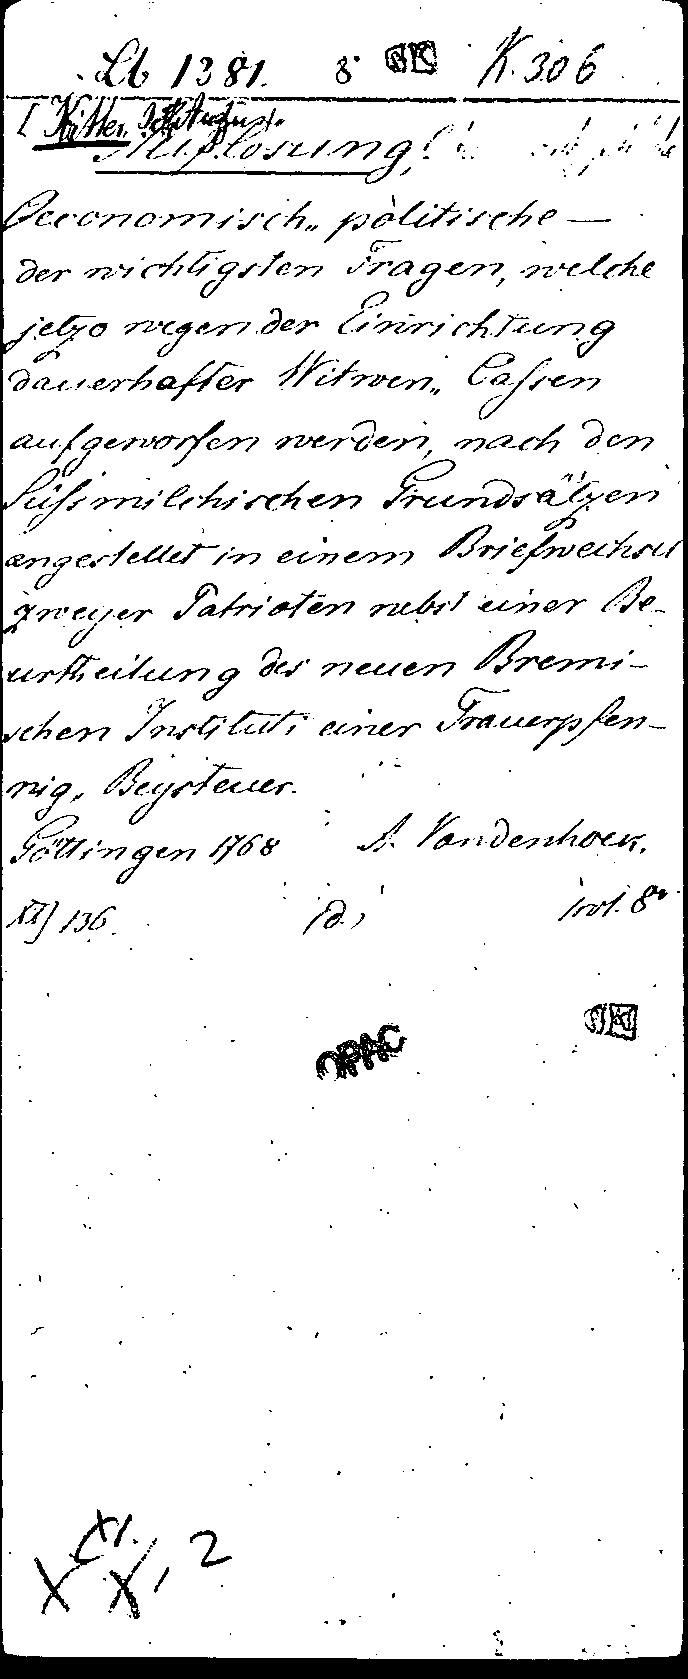 Lb 1381. 8° SK K. 306
[Ritter, Joh. August].
Auflösung,
Oeconomisch„ politische —
der wichtigsten Fragen, welche
jetzo wegen der Einrichtung
dauerhafter Witwen„ Cassen
aufgeworfen werden, nach den
Süssmilchischen Grundsätzen
angestellet in einem Briefwechsel
zweyer Patrioten nebst einer Be-
urtheilung des neuen Bremi-
schen Instituts einer Trauerpfen-
nig„ Beysteuer.
Göttingen 1768 A. Vandenhoek.
XI] 136. (d.) 8°
OPAC
XI.
X X, 2